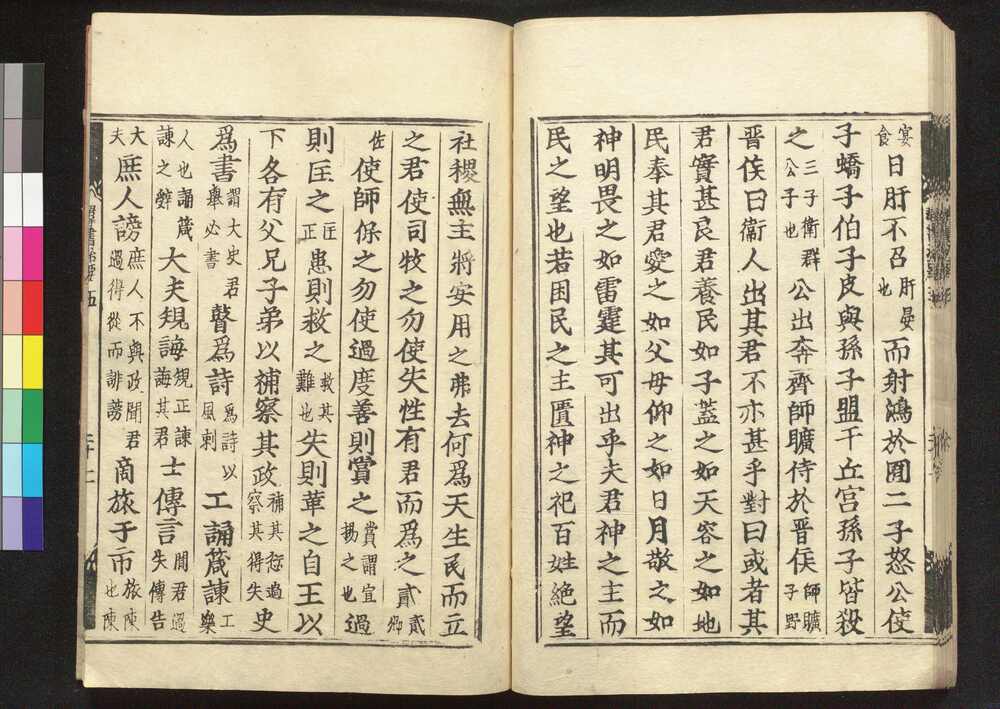 宴食日肝不召肝晏也而射鴻於囿二子怒公使
子蟜子伯子皮與孫子盟于丘宮孫子皆殺
之三子衛群公子也公出奔齊師曠侍於晋侯師曠子野
晋侯曰衛人出其君不亦甚乎對曰或者其
君實甚良君養民如子蓋之如天容之如地
民奉其君愛之如父母仰之如日月敬之如
神明畏之如雷霆其可出乎夫君神之主而
民之望也若困民之主匱神之祀百姓絶望
社稷無主將安用之弗去何爲天生民而立
之君使司牧之勿使失性有君而爲之貳貳卿
佐使師保之勿使過度善則賞之賞謂宣揚之也過
則匡之匡正患則救之救其難也失則革之自王以
下各有父兄子弟以補察其政補其愆過察其得失史
爲書謂大史君舉必書瞽爲詩爲詩以風刺工誦箴諫工樂
人也誦箴諫之辭大夫規誨規正諫誨其君士傳言聞君過失傳告
大夫庶人謗庶人不與政聞君過得從而誹謗商旅于市旅陳也陳
群書治要五
二十二